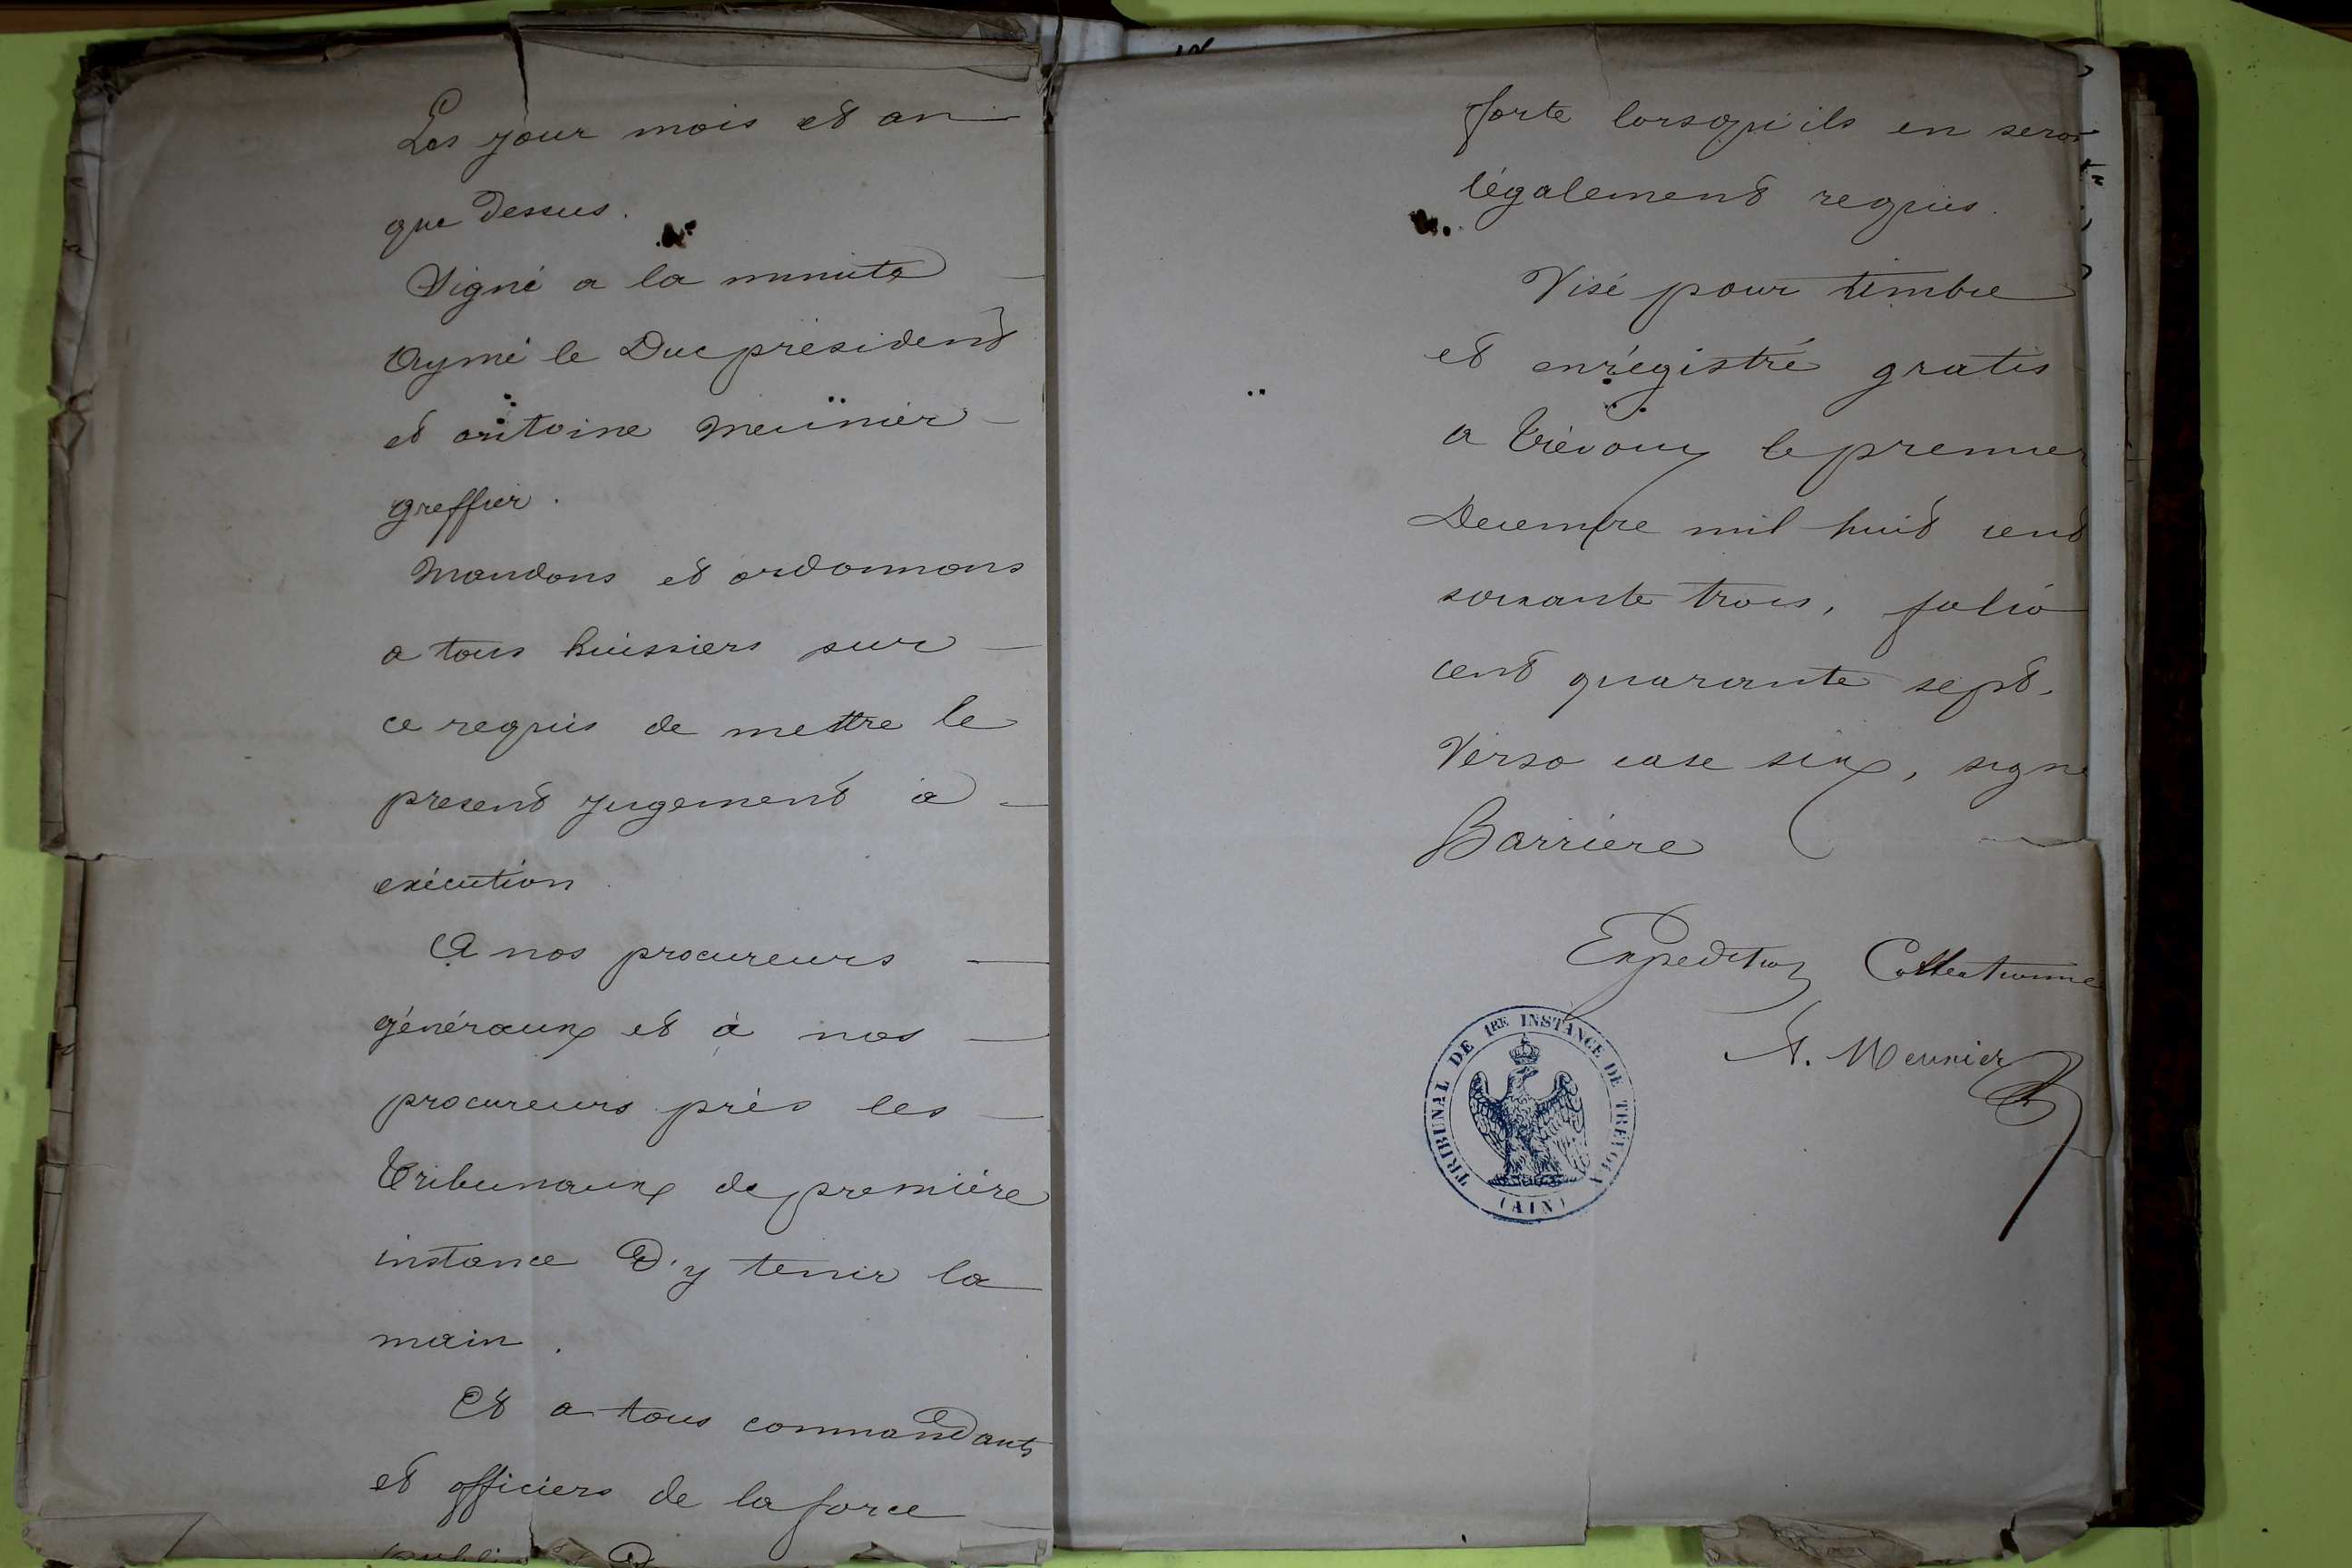 Les jour mois et an
que dessus.
Signé a la minute
Aymé le Duc président
et antoine Meünier
greffier.
Mandons et ordonnons
a tous huissiers sur
ce requis de mettre le
present jugement à
exécution
A nos procureurs
généraux et à nos
procureurs près les
Tribunaux de première
instance d'y tenir la
main.
Et a tous commandants
et officiers de la force
forte lorsqu'ils en seron
légalement requis.
Visé pour timbre
et enrégistré gratis
a Trévoux le premier
Decembre mil huit cent
soixante trois, folio
cent quarante sept.
Verso case six, signé
Barriere
Expedition Collationnée
A. Meunier
TRIBUNAL DE 1RE INSTANCE DE TREVOUX
(AIN)